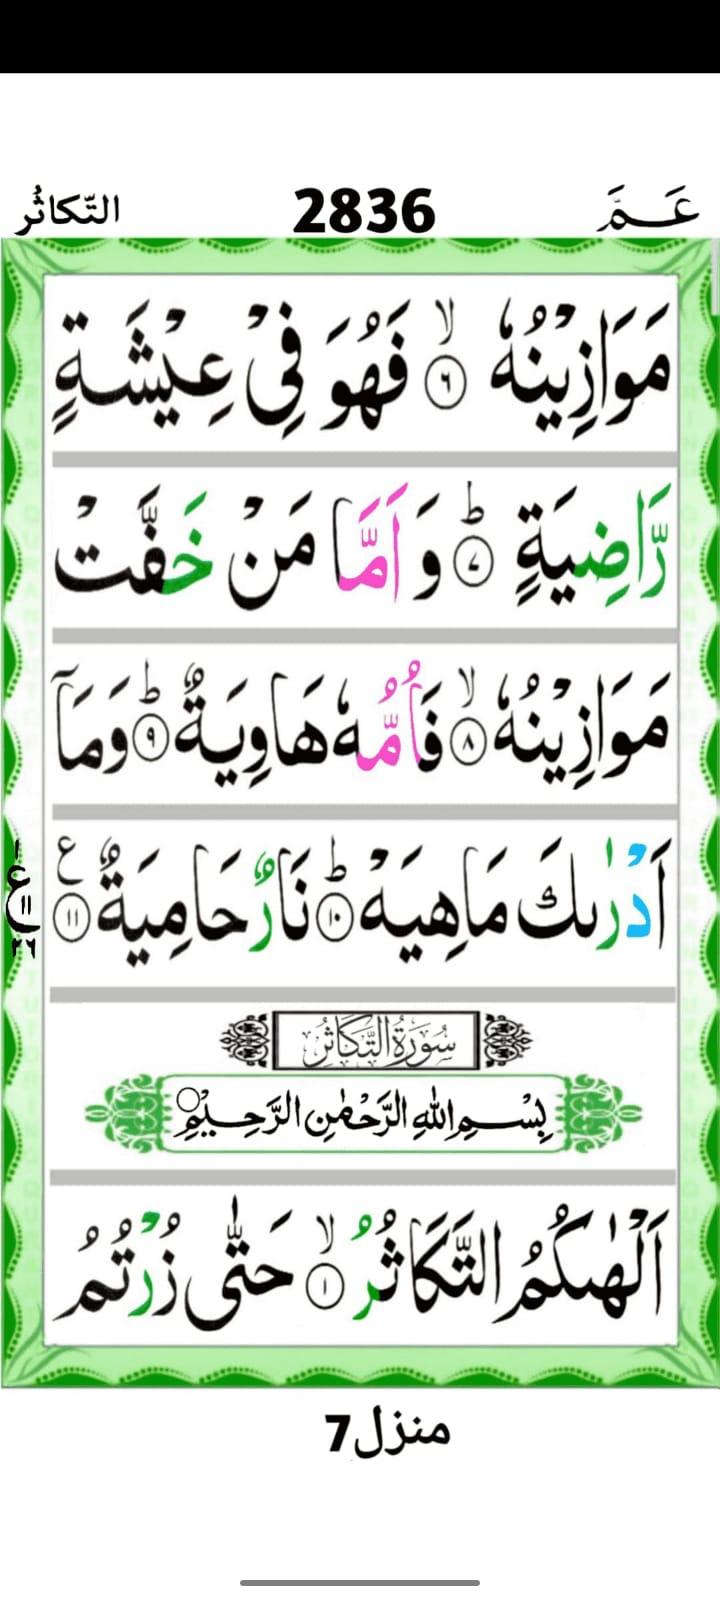 عَـمَّ 2836 التّكاثُر
مَوَازِيْنُهٗ ۙ﴿۶﴾ فَهُوَ فِيْ عِيْشَةٍ
رَّاضِيَةٍ ؕ﴿۷﴾ وَ اَمَّا مَنْ خَفَّتْ
مَوَازِيْنُهٗ ۙ﴿۸﴾ فَاُمُّهٗ هَاوِيَةٌ ؕ﴿۹﴾ وَمَاۤ
اَدْرٰىكَ مَاهِيَهْ ؕ﴿۱۰﴾ نَارٌ حَامِيَةٌ ﴿۱۱﴾ ع
سُوْرَةُ التَّكَاثُرِ
بِسْمِ اللّٰهِ الرَّحْمٰنِ الرَّحِيْمِ
اَلْهٰىكُمُ التَّكَاثُرُ ۙ﴿۱﴾ حَتّٰى زُرْتُمُ
منزل7